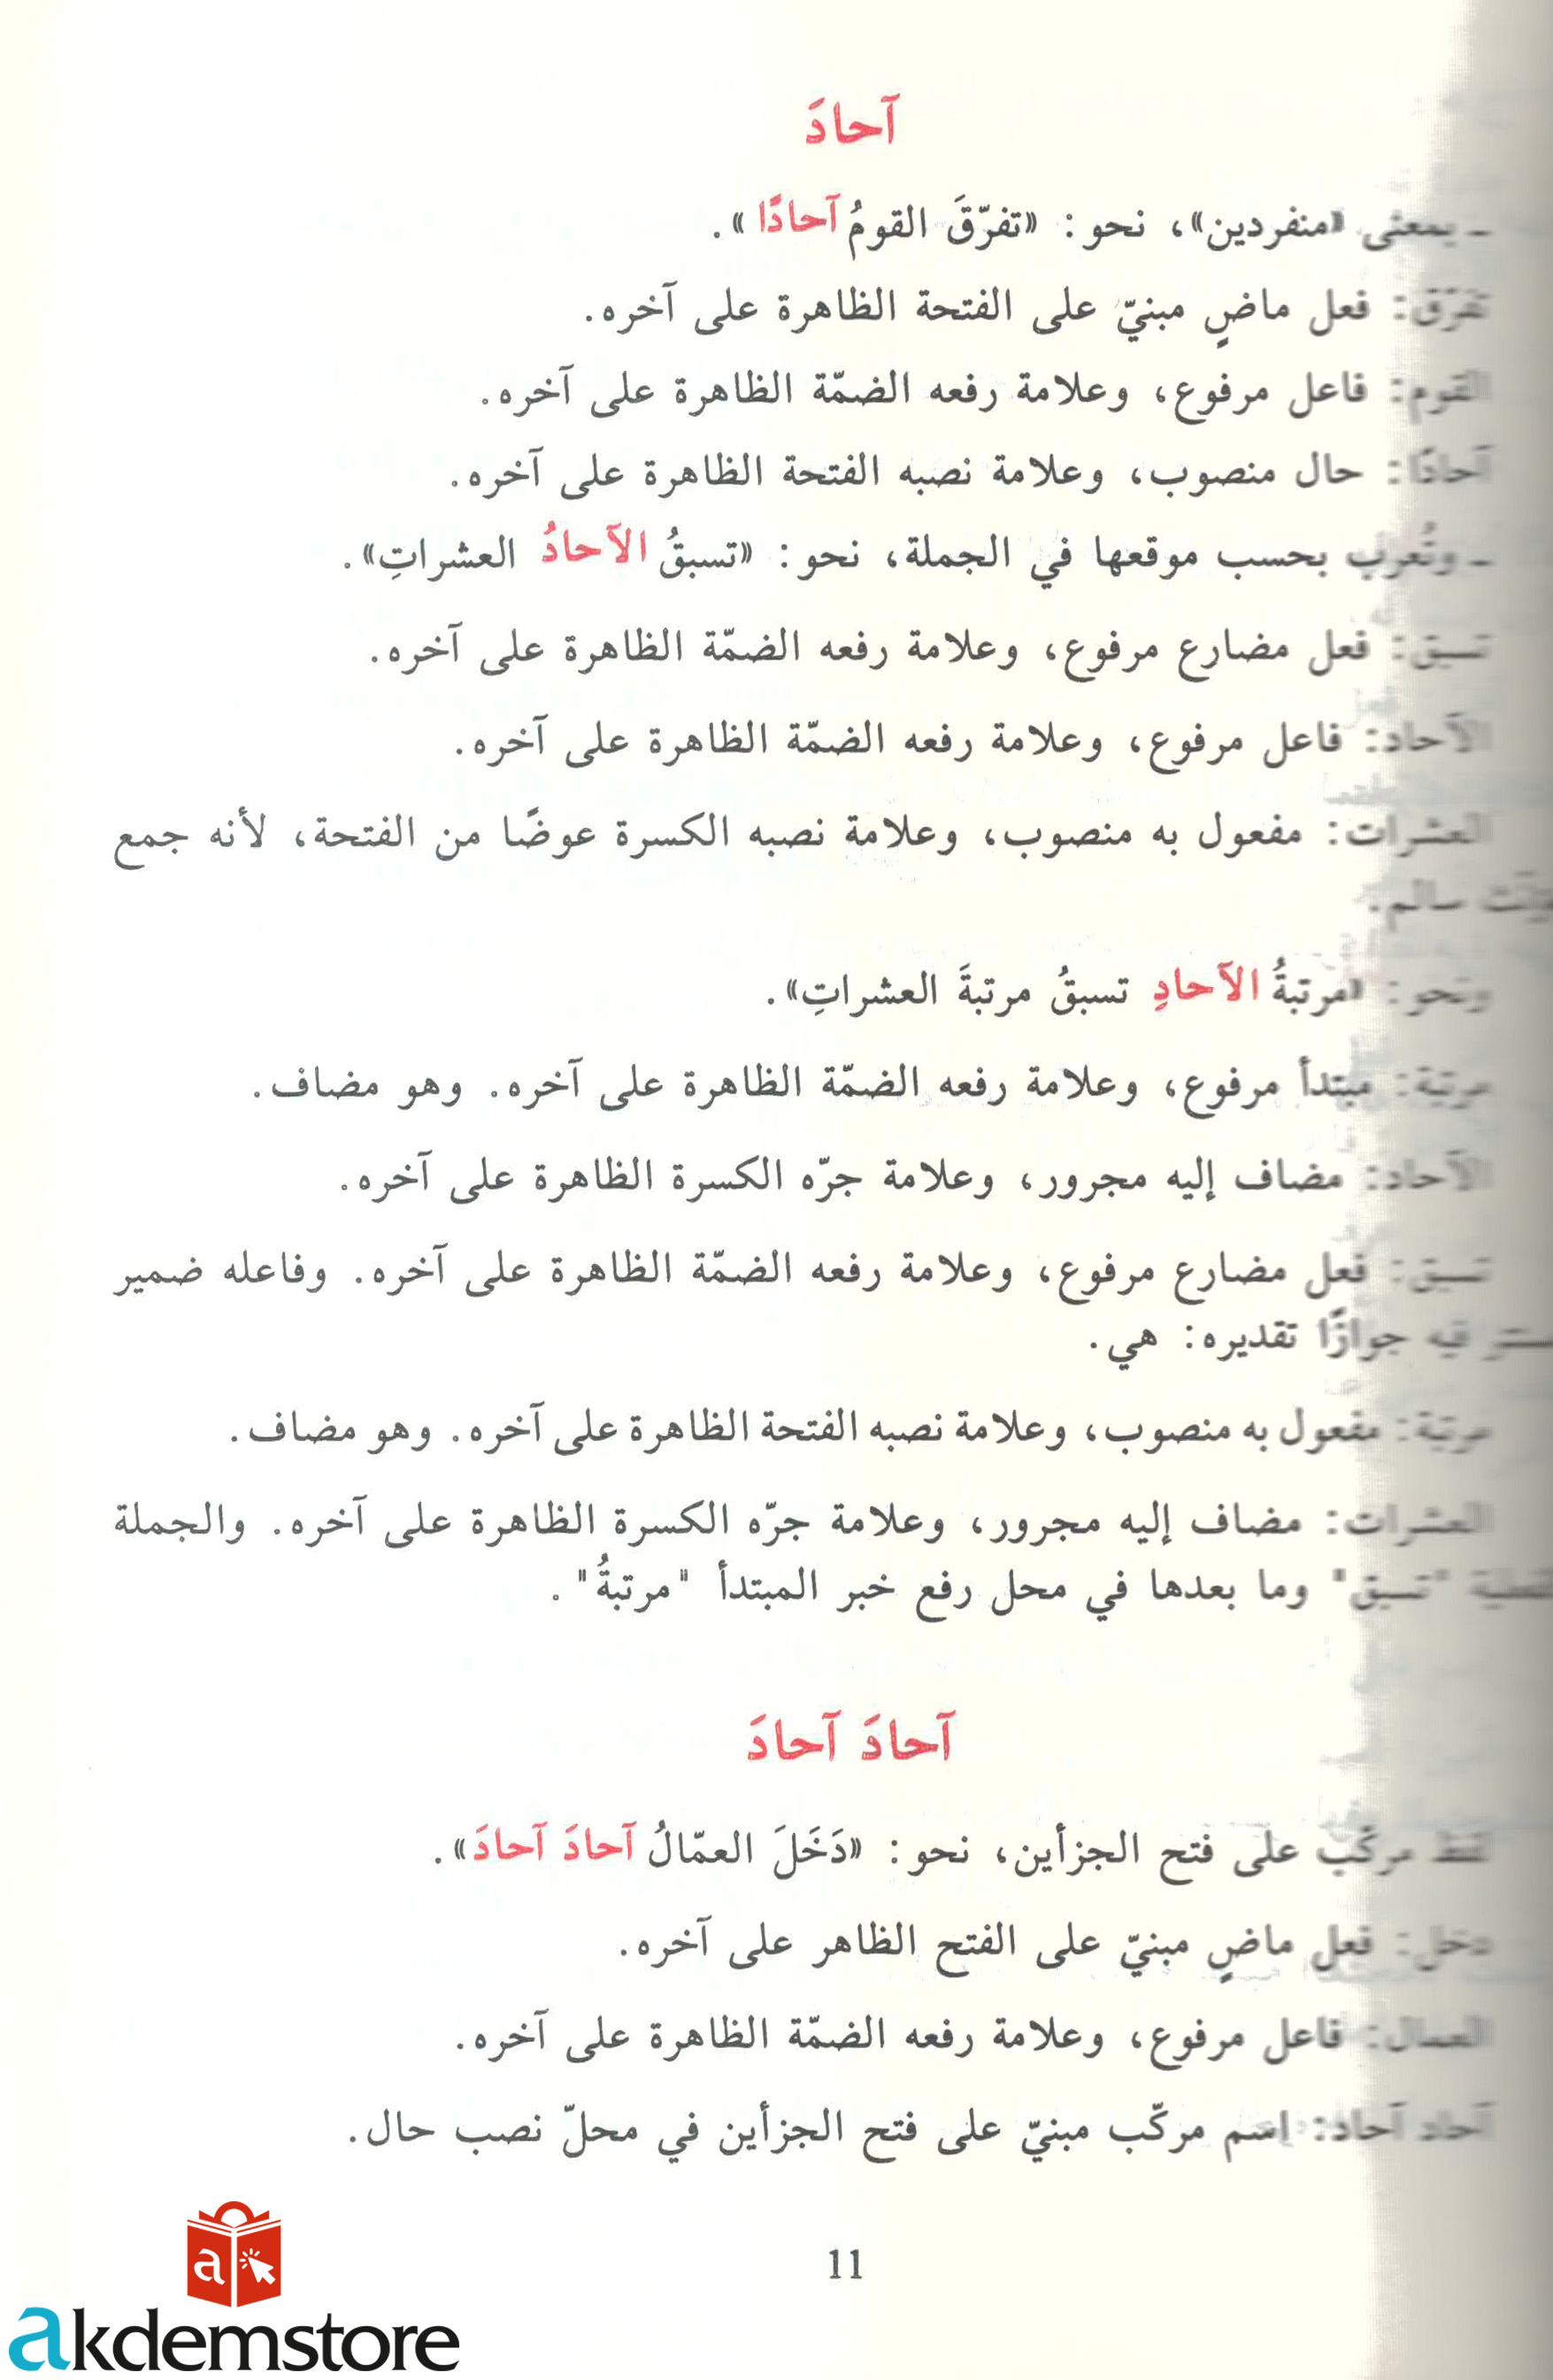 آحادَ
ـ بمعنى «منفردين»، نحو: «تفرّقَ القومُ آحادًا».
تفرّق: فعل ماضٍ مبنيّ على الفتحة الظاهرة على آخره.
القوم: فاعل مرفوع، وعلامة رفعه الضمّة الظاهرة على آخره.
آحادًا: حال منصوب، وعلامة نصبه الفتحة الظاهرة على آخره.
ـ وتُعرب بحسب موقعها في الجملة، نحو: «تسبقُ الآحادُ العشراتِ».
تسبق: فعل مضارع مرفوع، وعلامة رفعه الضمّة الظاهرة على آخره.
الآحاد: فاعل مرفوع، وعلامة رفعه الضمّة الظاهرة على آخره.
العشرات: مفعول به منصوب، وعلامة نصبه الكسرة عوضًا من الفتحة، لأنه جمع
مؤنّث سالم.
ونحو: «مرتبةُ الآحادِ تسبقُ مرتبةَ العشراتِ».
مرتبة: مبتدأ مرفوع، وعلامة رفعه الضمّة الظاهرة على آخره. وهو مضاف.
الآحاد: مضاف إليه مجرور، وعلامة جرّه الكسرة الظاهرة على آخره.
تسبق: فعل مضارع مرفوع، وعلامة رفعه الضمّة الظاهرة على آخره. وفاعله ضمير
مستتر فيه جوازًا تقديره: هي.
مرتبة: مفعول به منصوب، وعلامة نصبه الفتحة الظاهرة على آخره. وهو مضاف.
العشرات: مضاف إليه مجرور، وعلامة جرّه الكسرة الظاهرة على آخره. والجملة
الفعلية "تسبق" وما بعدها في محل رفع خبر المبتدأ "مرتبةُ".
آحادَ آحادَ
لفظ مركّب على فتح الجزأين، نحو: «دَخَلَ العمّالُ آحادَ آحادَ».
دخل: فعل ماضٍ مبنيّ على الفتح الظاهر على آخره.
العمال: فاعل مرفوع، وعلامة رفعه الضمّة الظاهرة على آخره.
آحاد آحاد: اسم مركّب مبنيّ على فتح الجزأين في محلّ نصب حال.
11
a
akdemstore